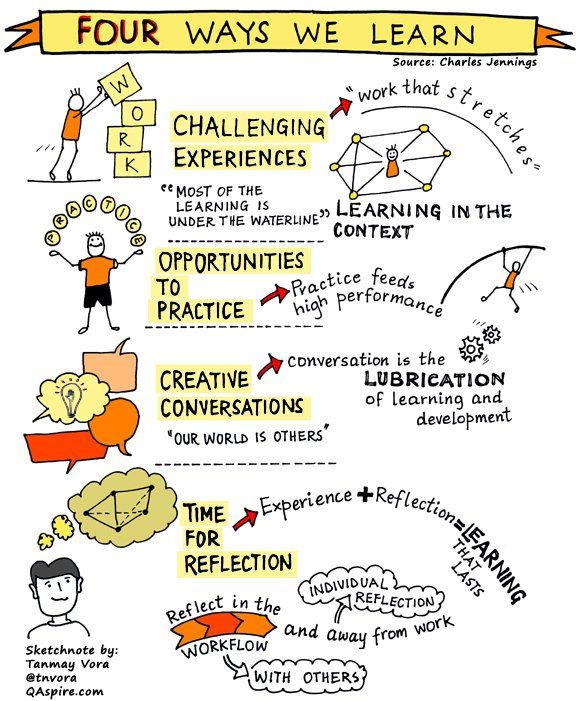 FOUR WAYS WE LEARN
Source: Charles Jennings
W
O
R
K
CHALLENGING
EXPERIENCES
"work that stretches"
"MOST OF THE
LEARNING IS
UNDER THE WATERLINE"
LEARNING IN THE
CONTEXT
PRACTICE
OPPORTUNITIES
TO
PRACTICE
Practice feeds
high performance
CREATIVE
CONVERSATIONS
"OUR WORLD IS OTHERS"
conversation is the
LUBRICATION
of learning and
development
TIME
FOR
REFLECTION
Experience + Reflection = LEARNING
THAT
LASTS
Reflect in the
WORKFLOW
and away from work
INDIVIDUAL
REFLECTION
WITH OTHERS
Sketchnote by:
Tanmay Vora
@tnvora
QAspire.com